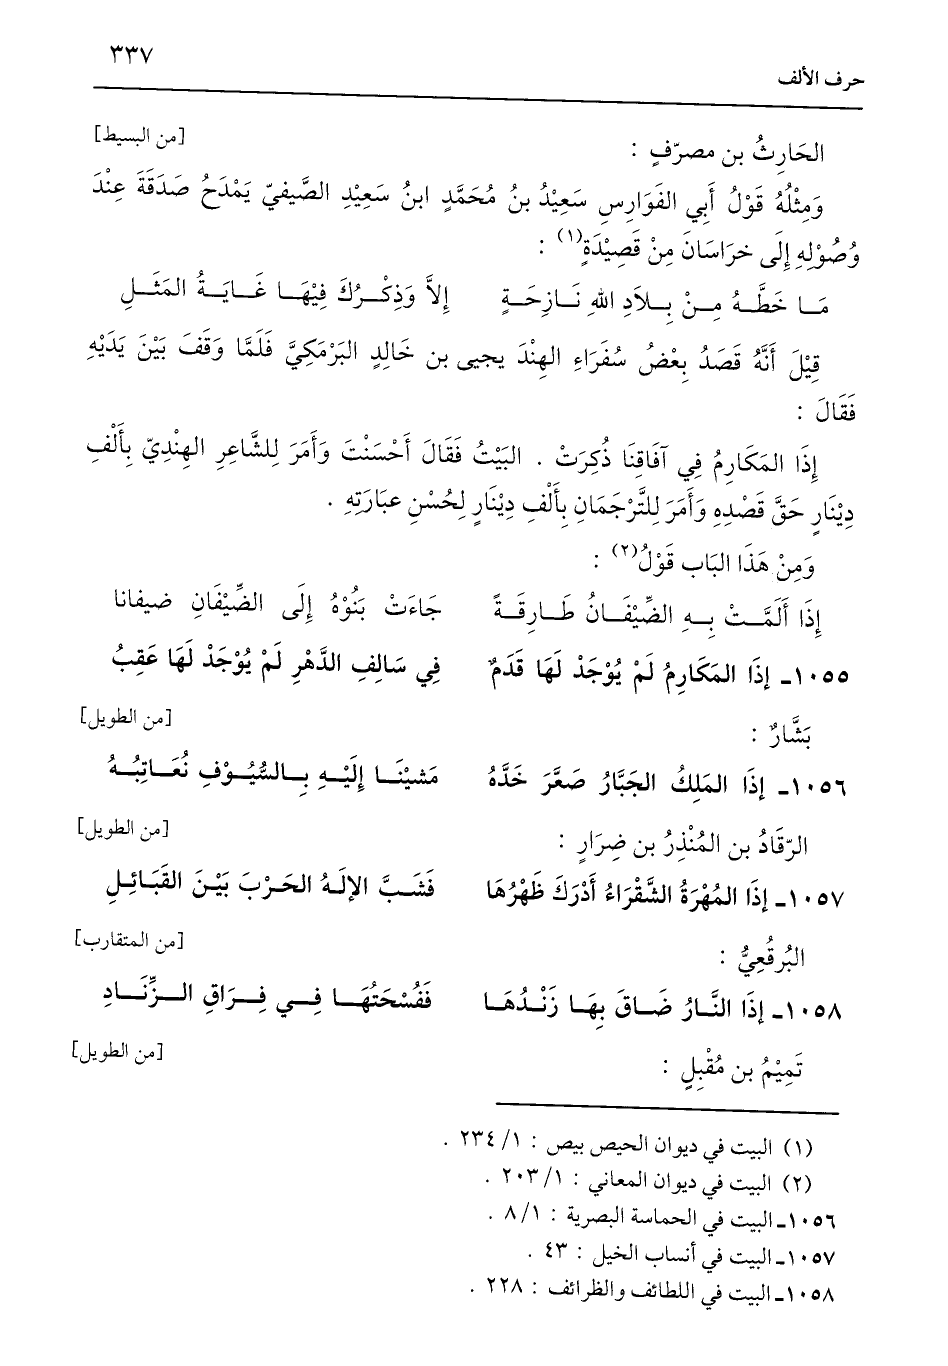 ٣٣٧
حرف الألف
الحَارِثُ بن مصرّفٍ : [من البسيط]
وَمِثْلُهُ قَوْلُ أَبِي الفَوَارِسِ سَعِيْدُ بنُ مُحَمَّدٍ ابنُ سَعِيْدِ الصَّيفيّ يَمْدَحُ صَدَقَةَ عِنْدَ
وُصُوْلِهِ إِلَى خرَاسَانَ مِنْ قَصِيْدَةٍ(١) :
مَا خَطَّهُ مِنْ بِلاَدِ اللهِ نَازِحَةٍ إِلاَّ وَذِكْرُكَ فِيْهَا غَايَةُ المَثَلِ
قِيْلَ أَنَّهُ قَصَدُ بِعْضُ سُفَرَاءِ الهِنْدَ يحيى بن خَالِدٍ البَرْمَكِيَّ فَلَمَّا وَقَفَ بَيْنَ يَدَيْهِ
فَقَالَ :
إِذَا المَكَارِمُ فِي آفَاقِنَا ذُكِرَتْ . البَيْتُ فَقَالَ أَحْسَنْتَ وَأَمَرَ لِلشَّاعِرِ الهِنْدِيّ بِأَلْفِ
دِيْنَارٍ حَقَّ قَصْدِهِ وَأَمَرَ لِلتَّرْجَمَانِ بِأَلْفِ دِيْنَارٍ لِحُسْنِ عبَارَتِهِ .
وَمِنْ هَذَا البَاب قَوْلُ(٢) :
إِذَا أَلَمَّتْ بِهِ الضِّيْفَانُ طَارِقَةً جَاءَتْ بَنُوْهُ إِلَى الضِّيْفَانِ ضيفانا
١٠٥٥ـ إِذَا المَكَارِمُ لَمْ يُوْجَدْ لَهَا قَدَمٌ فِي سَالِفِ الدَّهْرِ لَمْ يُوْجَدْ لَهَا عَقِبُ
بَشَّارٌ : [من الطويل]
١٠٥٦ـ إِذَا المَلِكُ الجَبَّارُ صَعَّرَ خَدَّهُ مَشيْنَا إِلَيْهِ بِالسُّيُوْفِ نُعَاتِبُهُ
الرّقَادُ بن المُنْذِرُ بن ضِرَارٍ : [من الطويل]
١٠٥٧ـ إِذَا المُهْرَةُ الشَّقْرَاءُ أَدْرَكَ ظَهْرُهَا فَشَبَّ الإلَهُ الحَرْبَ بَيْنَ القَبَائِلِ
البُرقُعِيُّ : [من المتقارب]
١٠٥٨ـ إِذَا النَّارُ ضَاقَ بِهَا زَنْدُهَا فَفُسْحَتُهَا فِي فِرَاقِ الزِّنَادِ
تَمِيْمُ بن مُقْبِلٍ : [من الطويل]
(١) البيت في ديوان الحيص بيص : ١/ ٢٣٤ .
(٢) البيت في ديوان المعاني : ١/ ٢٠٣ .
١٠٥٦ـ البيت في الحماسة البصرية : ١/ ٨ .
١٠٥٧ـ البيت في أنساب الخيل : ٤٣ .
١٠٥٨ـ البيت في اللطائف والظرائف : ٢٢٨ .